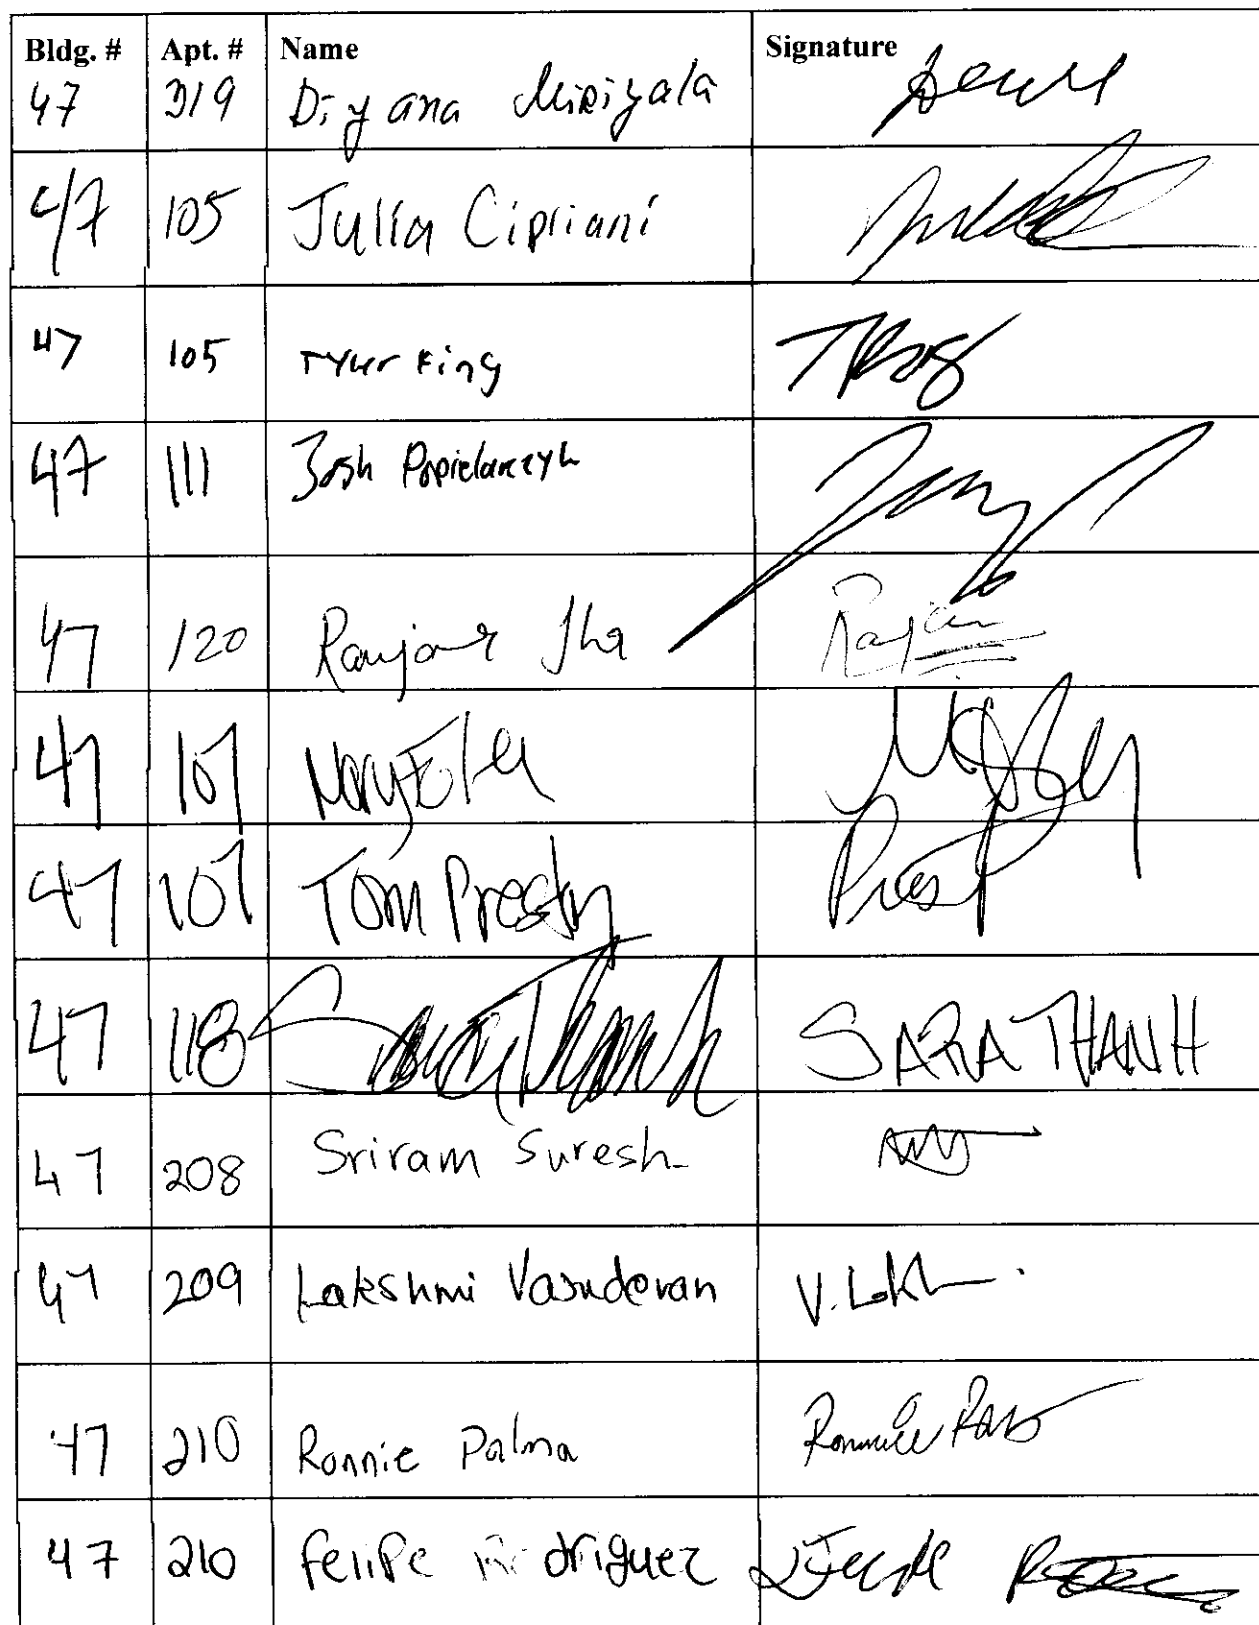 Bldg. # Apt. # Name Signature
47 319 Diyana Miriyala
47 105 Julia Cipriani
47 105 Tyler King
47 111 Josh Popielarczyk
47 120 Ranjana Jha Ranjan
47 107 Mary Foley
47 107 Tom Preston
47 118 Sara Thanh SARA THANH
47 208 Sriram Suresh
47 209 Lakshmi Vasudevan V. Lakh
47 210 Ronnie Palma
47 210 Felipe Rodriguez